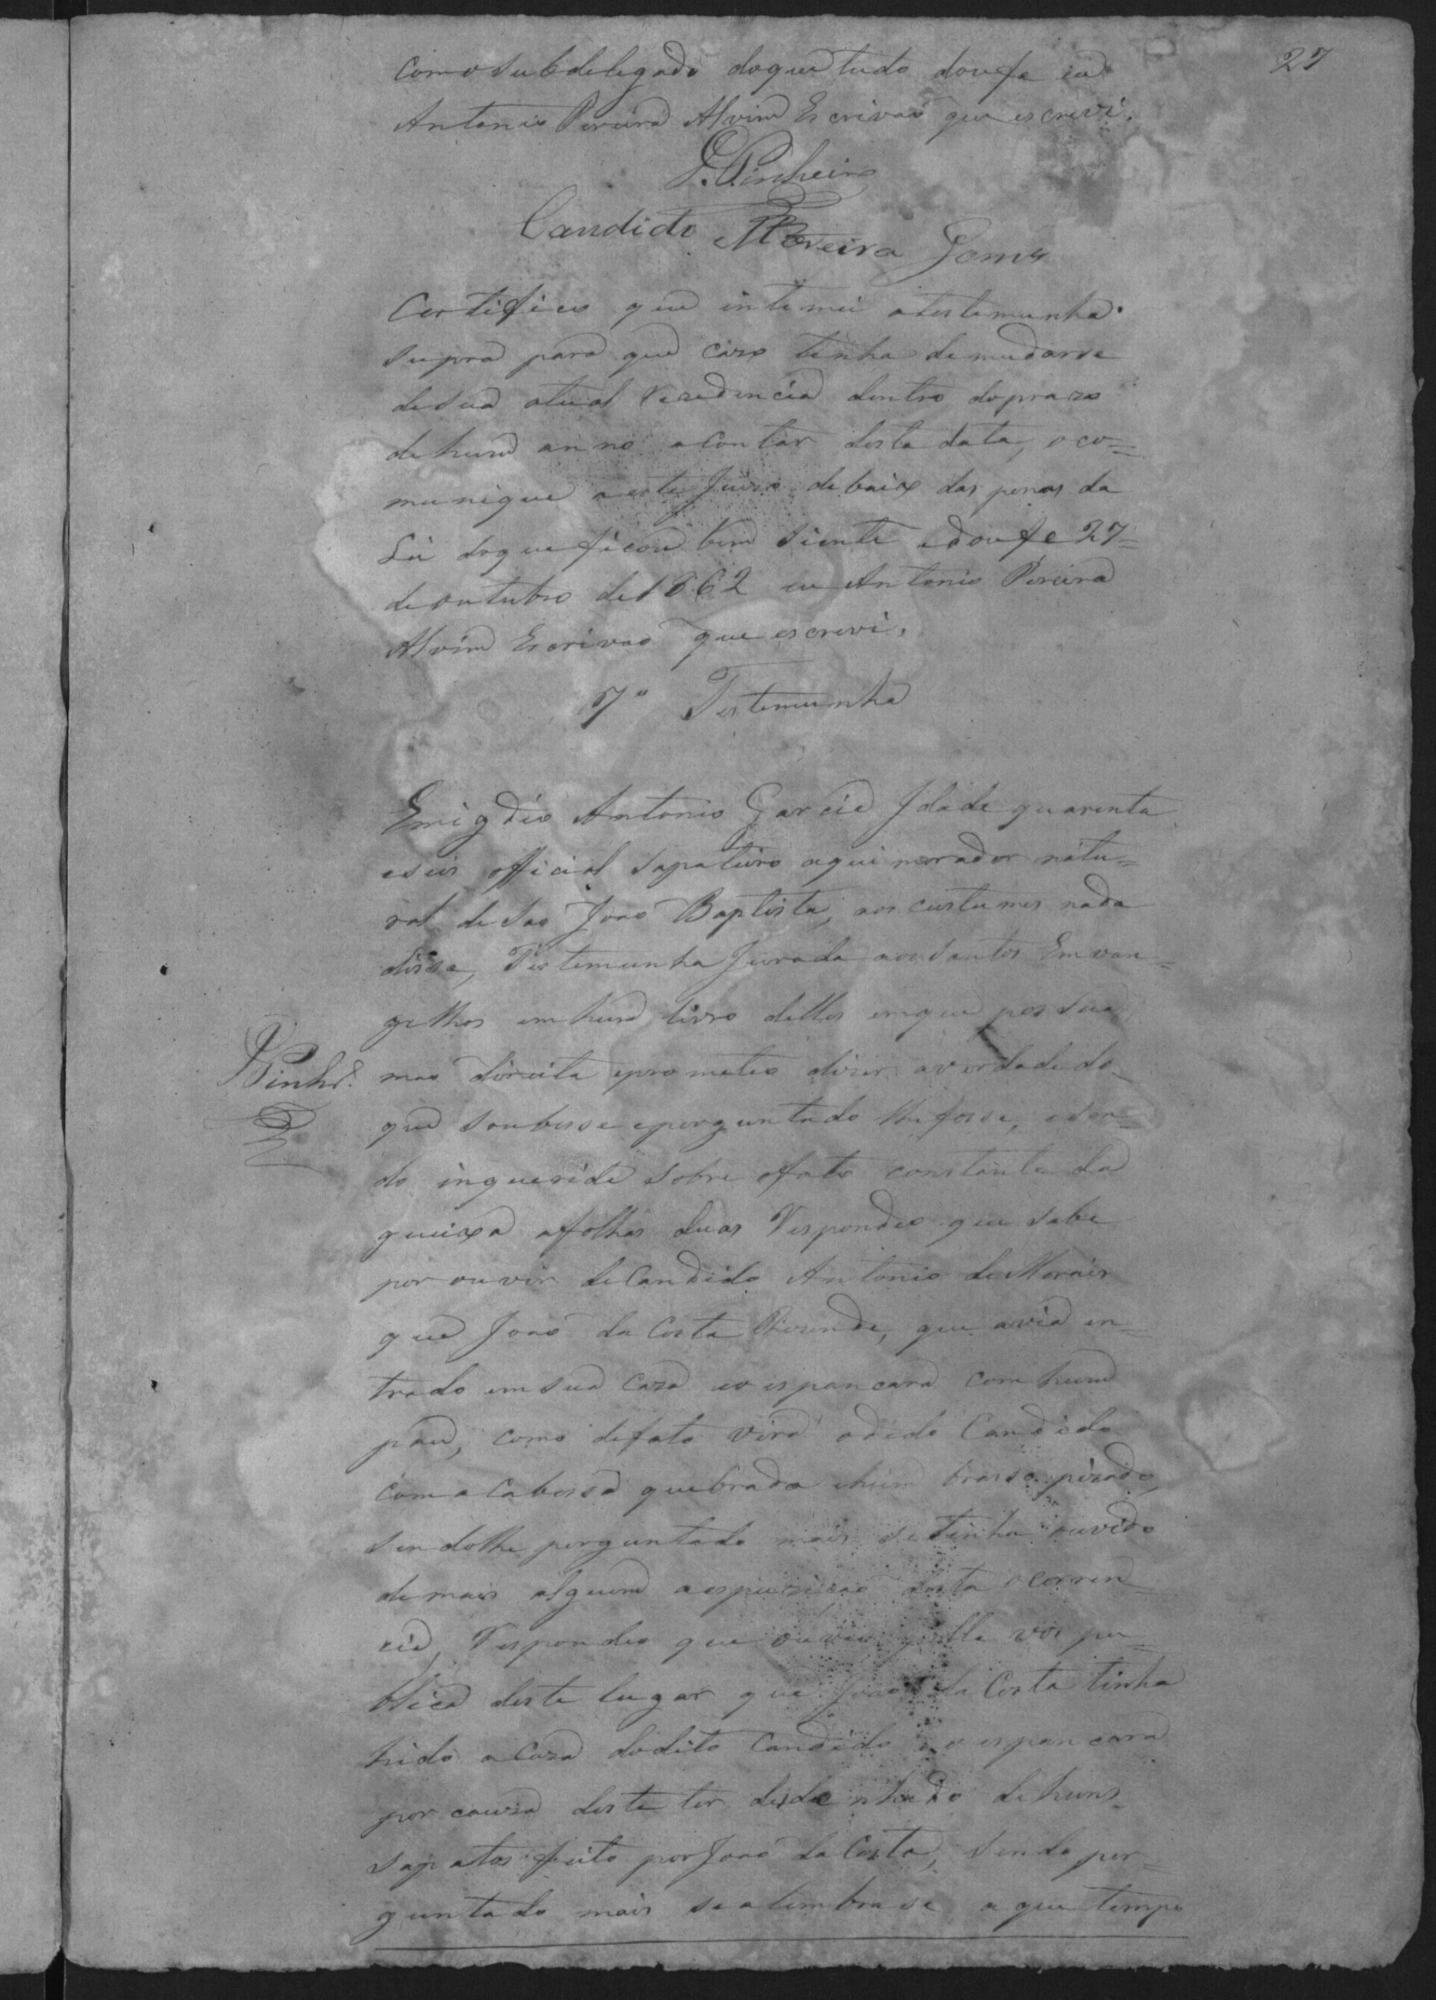 27
como subdelegado doque tudo dou fe eu
Antonio Pereira Alvim Escrivaõ que escrevi.
Pinheiro
Candido Moreira Gomes
Certifico que intemei a testemunha
supra para que cazo tenha demudarse
desua atual rezedencia dentro do prazo
de hum anno acontar desta data, o co=
munique a este Juizo debaixo das penas da
Lei doque ficou bem siente e dou fe 27=
de outubro de 1862 eu Antonio Pereira
Alvim Escrivaõ que escrevi.
7ª Testemunha
Emigdio Antonio Garcia Idade quarenta
eseis official sapateiro aqui morador natu=
ral de Sao Joao Baptista, aos custumes nada
disse, Testemunha Jurada aos Santos Emvan=
gelhos em hum livro delles em que pos sua
mao direita eprometeo dizer averdade do
Pinhrº.
que soubesse eperguntado lhe fosse, e sen=
do inquerido sobre ofato constante da
queixa afolhas duas Respondeo que sabe
por ouvir de Candido Antonio de Morais
que Joaõ da Costa Rezende, que avia en=
trado em sua caza e o espancara com hum
pau, como de fato vira o dido Candido
com a cabessa quebrada e hum brasso pizado,
sendolhe perguntado mais se tinha ouvido
de mais alguem a espuziçaõ desta ocorren=
cia, Respondeo que ouvio pella vos pu=
blica deste lugar que Joaõ da Costa tinha
hido a caza dodito Candido e o espancara
por cauza deste ter desdenhado de huns
sapatos feito por Joaõ da Costa, sendo per=
guntado mais se alembrase a que tempo